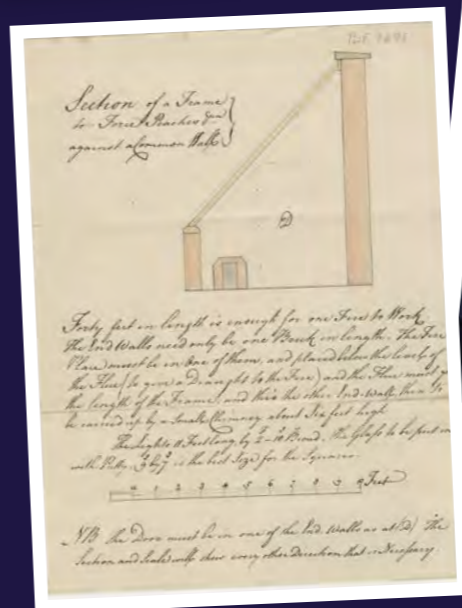 Section of a Frame
to Force Peaches &ca
against a Common Wall
D
Forty feet in length is enough for one Fire to Work
The End Walls need only be one Brick in length. The Fire
Place must be in One of them, and placed below the level of
the Flue (to give a Draught to the Fire) and the Flue must go
the length of the Frame, and thro the other End-Wall, then to
be carried up by a Small Chimney about Six feet high
The Lights 11 Feet long by 2 - 10 Broad, the Glass to be put in
with Putty. 9 by 7 is the best Size for the Squares
1 2 3 4 5 6 7 8 9 Feet
NB the Door must be in one of the End Walls as at (D) The
Section and Scale will shew every other Direction that is Necessary